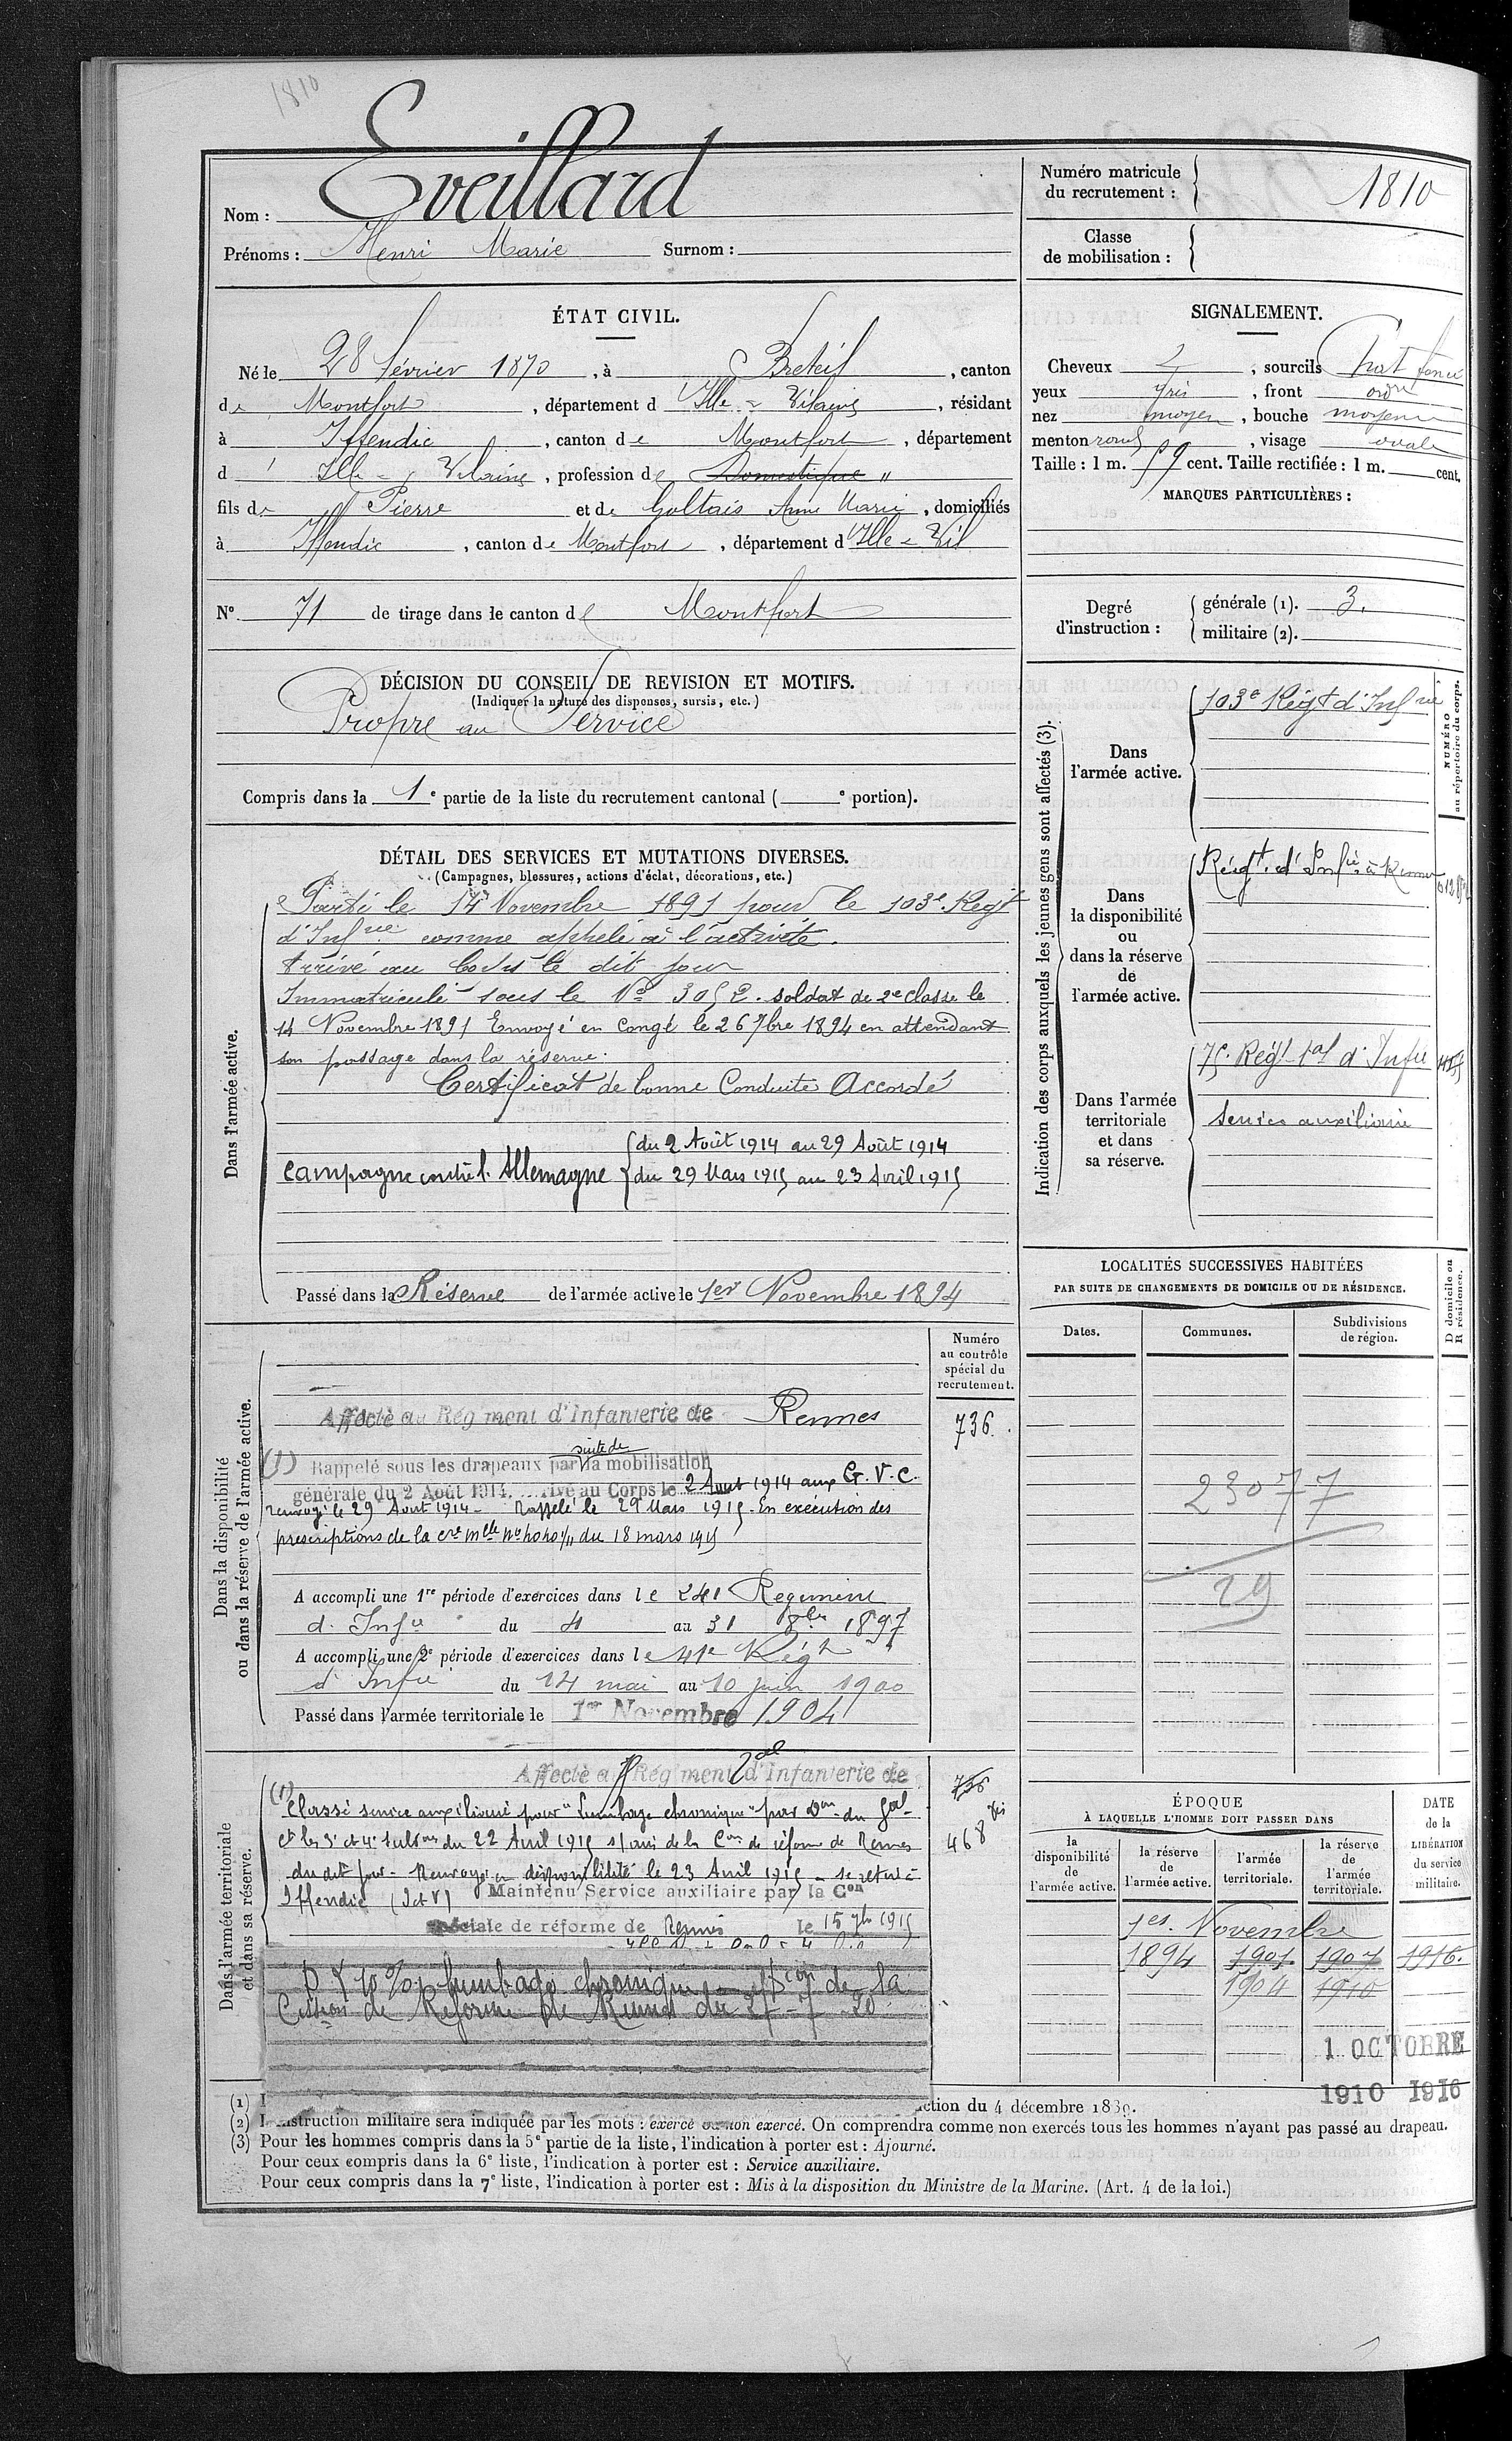 1810
Nom : Eveillard
Prénoms : Henri Marie Surnom :
Numéro matricule
du recrutement : 1810
Classe
de mobilisation :
ÉTAT CIVIL.
Né le 28 février 1870, à Breteil, canton
de Montfort, département d'Ille-&-Vilaine, résidant
à Iffendic, canton de Montfort, département
d'Ille-&-Vilaine, profession de Domestique "
fils de Pierre et de Goltais Anne Marie, domiciliés
à Iffendic, canton de Montfort, département d'Ille-&-Vil
N° 71 de tirage dans le canton de Montfort
SIGNALEMENT.
Cheveux &, sourcils Chat foncé
yeux gris, front ordre
nez moyen, bouche moyenne
menton rond, visage ovale
Taille : 1 m. 59 cent. Taille rectifiée : 1 m. cent.
MARQUES PARTICULIÈRES :
Degré
d'instruction :
générale (1). 3.
militaire (2).
DÉCISION DU CONSEIL DE REVISION ET MOTIFS.
(Indiquer la nature des dispenses, sursis, etc.)
Propre au Service
Compris dans la 1e partie de la liste du recrutement cantonal ( e portion).
DÉTAIL DES SERVICES ET MUTATIONS DIVERSES.
(Campagnes, blessures, actions d'éclat, décorations, etc.)
Dans l'armée active.
Parti le 14 Novembre 1891 pour le 103e Régt
d'Infrie comme appelé à l'activité.
Arrivé au Corps le dit jour
Immatriculé sous le No 3052. soldat de 2e classe le
14 Novembre 1891 Envoyé en congé le 26 7bre 1894 en attendant
son passage dans la réserve.
Certificat de bonne Conduite Accordé
Campagne contre l'Allemagne
du 2 Août 1914 au 29 Août 1914
du 29 Mars 1915 au 23 Avril 1915
Passé dans la Réserve de l'armée active le 1er Novembre 1894
Indication des corps auxquels les jeunes gens sont affectés (3).
NUMÉRO
au répertoire du corps.
Dans
l'armée active.
103e Régt d'Infrie
Dans
la disponibilité
ou
dans la réserve
de
l'armée active.
Régt. d'Infie à Rennes
Dans l'armée
territoriale
et dans
sa réserve.
75e Régt tal d'Infie
service auxiliaire
Dans la disponibilité
ou dans la réserve de l'armée active.
Numéro
au contrôle
spécial du
recrutement.
Affecté au Régiment d'Infanterie de Rennes
736.
suite de
(1) Rappelé sous les drapeaux par la mobilisation
générale du 2 Août 1914. Arrivé au Corps le 2 Aout 1914 aux G.V.C.
renvoyé le 29 Aout 1914 - Rappelé le 29 Mars 1915. En exécution des
prescriptions de la cre mlle No du 18 mars 1915
A accompli une 1re période d'exercices dans le 241 Régiment
d'Infie du 4 au 31 8bre 1897
A accompli une 2e période d'exercices dans le 41e Régt
d'Infie du 14 mai au 10 juin 1900
Passé dans l'armée territoriale le 1er Novembre 1904
LOCALITÉS SUCCESSIVES HABITÉES
PAR SUITE DE CHANGEMENTS DE DOMICILE OU DE RÉSIDENCE.
Dates. Communes. Subdivisions
de région.
D domicile ou
R résidence.
23077
29
Dans l'armée territoriale
et dans sa réserve.
Affecté au Régiment tal d'Infanterie de
736
468 bis
(1) Classé service auxiliaire pour "Lumbago chronique" par Don du Gal
Ct les 3e et 4e Subons du 22 Avril 1915 s/ avis de la Con de réforme de Rennes
du dit jour - Renvoyé en disponibilité le 23 Avril 1915 - se retire à
Iffendic (I et V) Maintenu Service auxiliaire par la Con
spéciale de réforme de Rennes le 15 9b 1915
10 % lumbago chronique de la
Cssion de Réforme de Rennes du 27-7-20
ÉPOQUE
À LAQUELLE L'HOMME DOIT PASSER DANS
DATE
de la
LIBÉRATION
du service
militaire.
la
disponibilité
de
l'armée active.
la réserve
de
l'armée active.
l'armée
territoriale.
la réserve
de
l'armée
territoriale.
1er Novembre
1894 1901 1907 1916.
1904 1910
1 OCTOBRE
1910 1916
(1) I ction du 4 décembre 1889.
(2) L'instruction militaire sera indiquée par les mots : exercé ou non exercé. On comprendra comme non exercés tous les hommes n'ayant pas passé au drapeau.
(3) Pour les hommes compris dans la 5e partie de la liste, l'indication à porter est : Ajourné.
Pour ceux compris dans la 6e liste, l'indication à porter est : Service auxiliaire.
Pour ceux compris dans la 7e liste, l'indication à porter est : Mis à la disposition du Ministre de la Marine. (Art. 4 de la loi.)